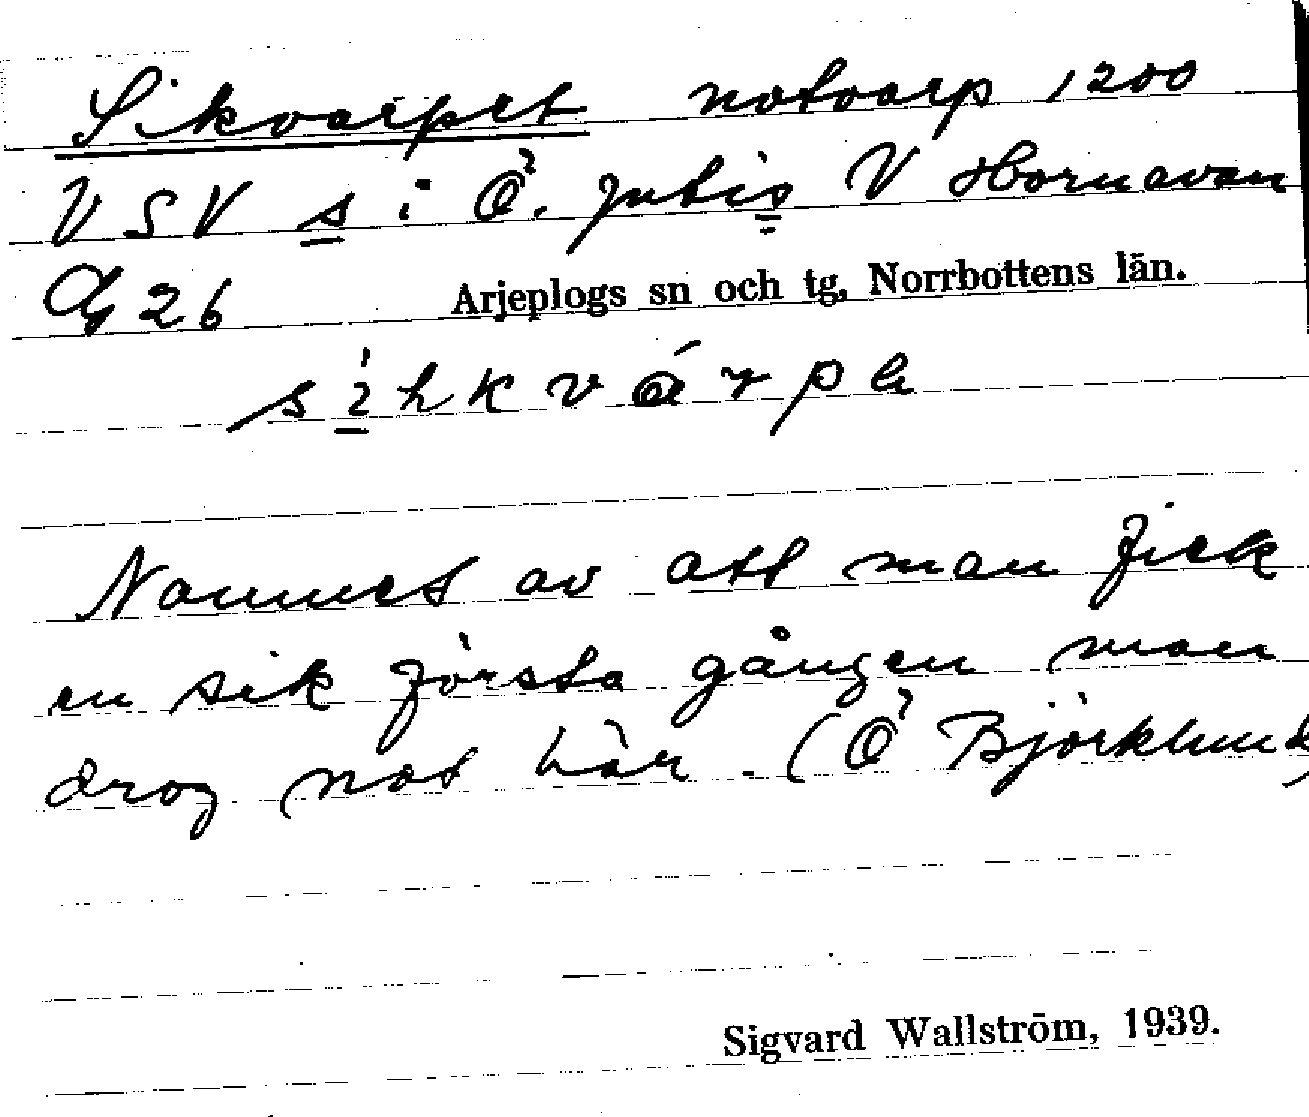 Sikvarpet notvarp 1200
VSV s i Ö. Jutis V Hornavan
26 Arjeplogs sn och tg, Norrbottens län.
Namnet av att man fick
en sik första gången man
drog not här. (Ö Björklund)
Sigvard Wallström, 1939.